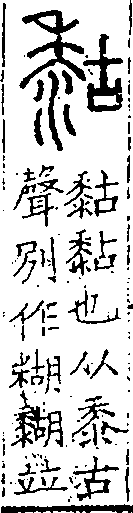 黏
黏黏也从黍古
聲別作糊䊀竝